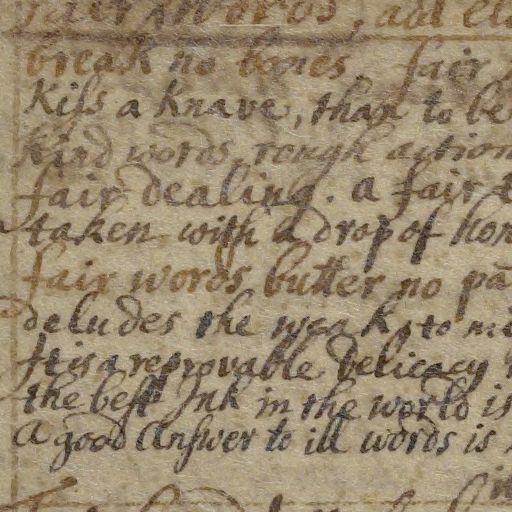 fair words, add
break no bones. fair
Kiss a Knave, than to be
Kind words, rough action
fair dealing. a fair
taken with a drop of hon
fair words butter no pa
deludes the weak, to mi
It is a reprovable Delicacy
the best Ink in the world is
A good Answer to ill words is